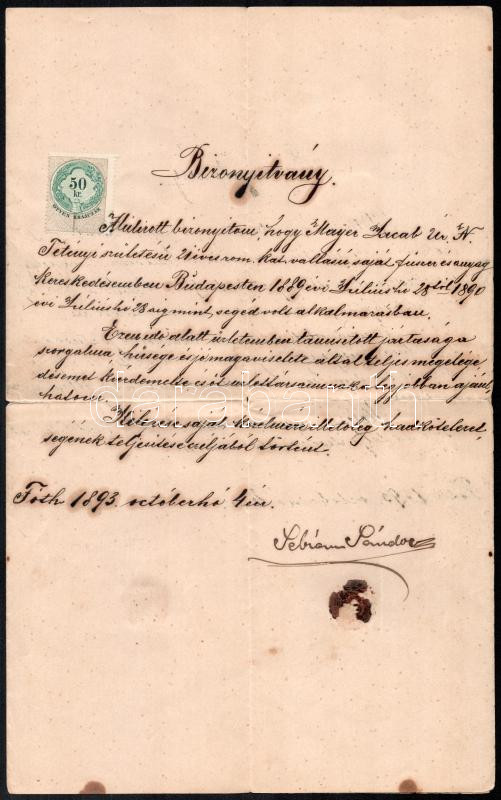 Bizonyitvány.
50
kr.
ÖTVEN KRAJCZÁR
Alulirott bizonyitom, hogy Mayer Jacab Úr, N.
Tétényi születésü 21 éves rom. kat. vallású saját füszer és anyag
kereskedésemben Budapesten 1889 évi Július hó 28tól 1890
évi Július hó 28 aig mint segéd volt alkalmazásban.
Ezen idő alatt üzletemben tanusitott jártassága
szorgalma hűsége és jó magaviselete által teljes megelége
désemet kiérdemelte és őt üzlettársaimnak legjobban ajánl
hatom.
Kilépése saját kérelmére illetőleg hadkötelezett
ségének teljesitése czéljából történt.
Fóth 1893. octóber hó 4én.
Sándor
darabanth